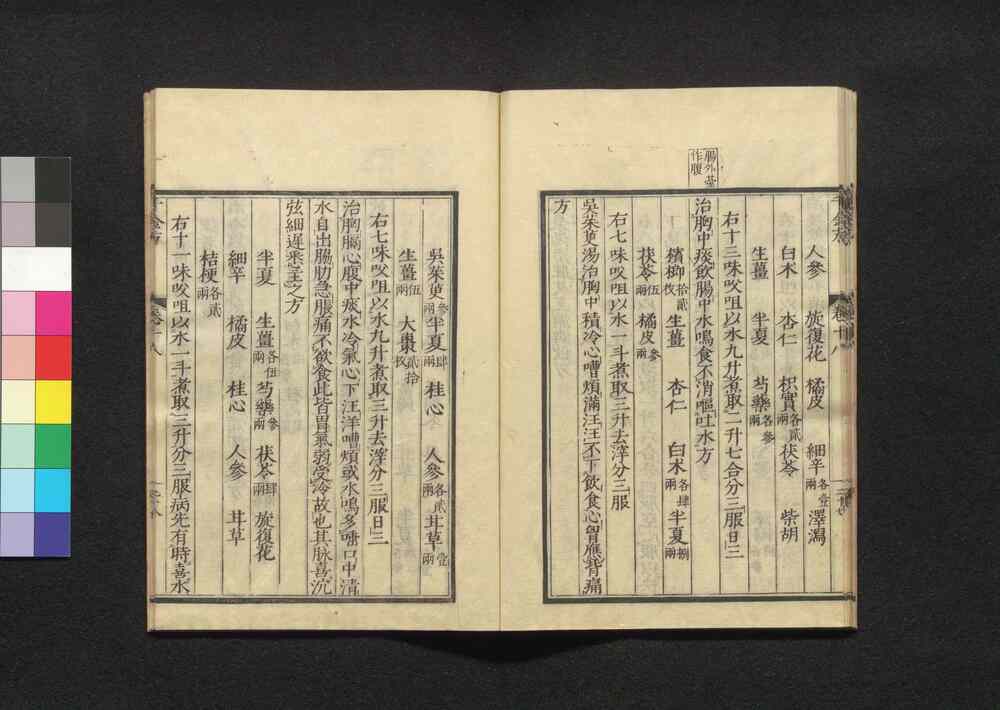 腸外臺
作腹
人參 旋復花 橘皮 細辛各壹兩 澤瀉
白朮 杏仁 枳實各貳兩 茯苓 柴胡
生薑 半夏 芍藥各參兩
右十三味㕮咀以水九升煮取二升七合分三服日三
治胸中痰飲腸中水鳴食不消嘔吐水方
檳榔拾貳枚 生薑 杏仁 白朮各肆兩 半夏捌兩
茯苓伍兩 橘皮參兩
右七味㕮咀以水一斗煮取三升去滓分三服
吳茱萸湯治胸中積冷心嘈煩滿汪汪不下飲食心胷應背痛
方
吳茱萸參兩 半夏肆兩 桂心 人參各貳兩 甘草壹兩
生薑伍兩 大棗貳拾枚
右七味㕮咀以水九升煮取三升去滓分三服日三
治胸膈心腹中痰水冷氣心下汪洋嘈煩或水鳴多唾口中清
水自出脇肋急脹痛不欲食此皆胃氣弱受冷故也其脉喜沉
弦細遲悉主之方
半夏 生薑各伍兩 芍藥參兩 茯苓肆兩 旋復花
細辛 橘皮 桂心 人參 甘草
桔梗各貳兩
右十一味㕮咀以水一斗煮取三升分三服病先有時喜水